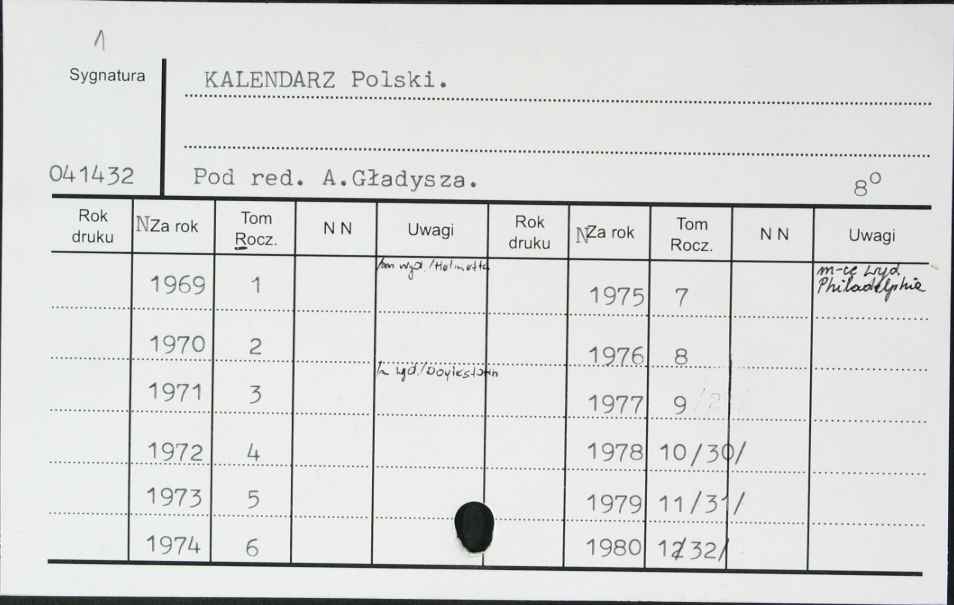 1
Sygnatura
KALENDARZ Polski.
041432
Pod red. A.Gładysza.
8°
Rok druku NZa rok Tom Rocz. N N Uwagi Rok druku NZa rok Tom Rocz. N N Uwagi
1969 1 /Helmetta 1975 7 m-ce wyd. Philadelphie
1970 2 1976 8
1971 3 wyd./Doylestown 1977 9
1972 4 1978 10/30/
1973 5 1979 11/31/
1974 6 1980 12/32/